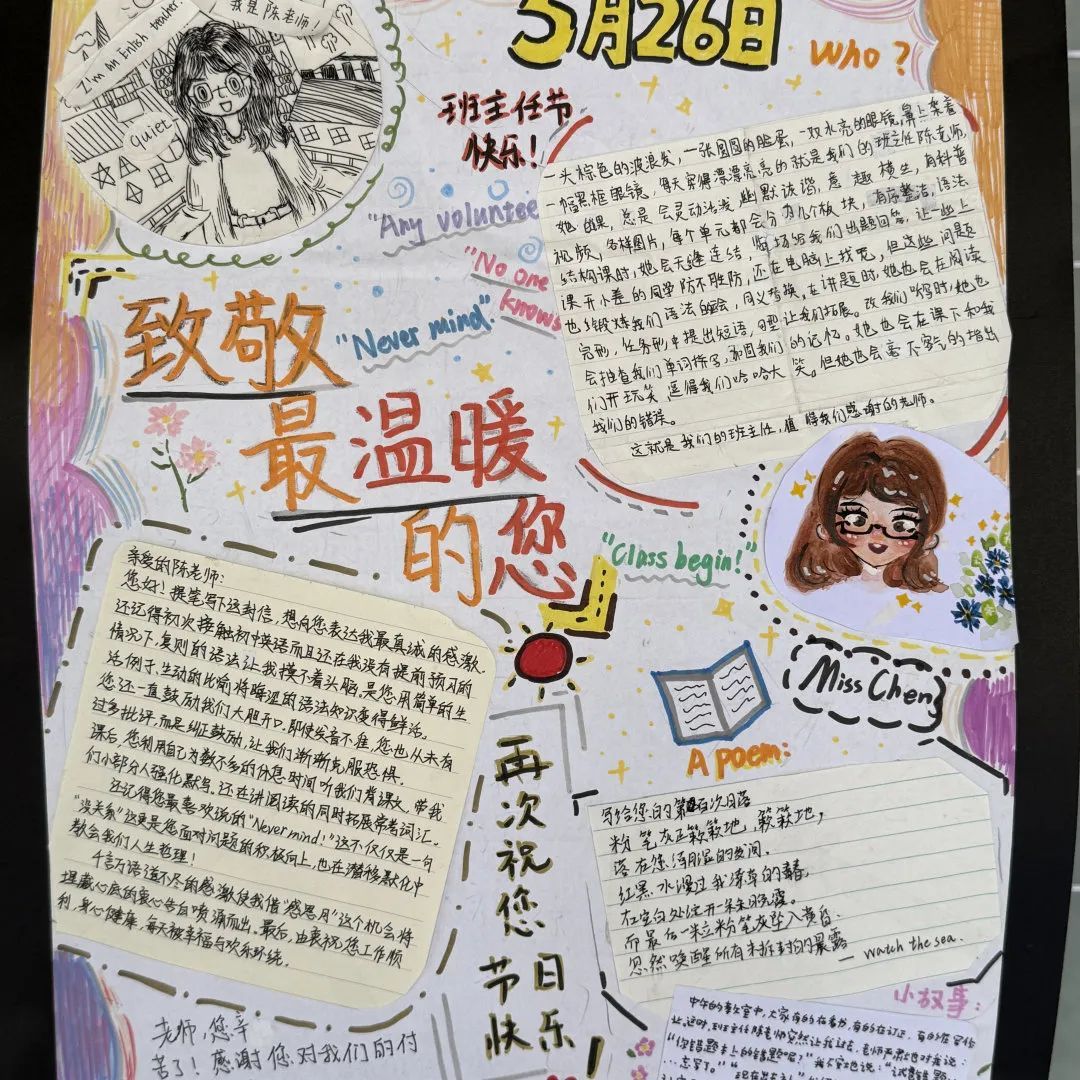 I'm an Enlish teacher
我是陈老师!
quiet
5月26日
Who?
班主任节
快乐!
"Any voluntee
"No one
knows
"Never mind."
致敬
最温暖
的您
"Class begin!"
一头棕色的波浪发,一张圆圆的脸蛋,一双水亮的眼镜,鼻上架着
一幅黑框眼镜,每天穿得漂漂亮亮的就是我们的班主任陈老师,
她幽默,总是会灵动活泼幽默诙谐,意趣横生,有科普
视频,各样图片,每个单元都会分为几个板块,有序整洁,语法
结构课时,她会无缝连结,当场给我们出题回答,让一些上
课开小差的同学防不胜防,还在电脑上找
但这些问题
也锻炼我们语法的
同义替换,在讲题时,她也会在阅读
完形,任务形中提出短语,
让我们拓展。改我们
时,她也
会抽查我们单词拼写,巩固我们的记忆。她也会在课下和我
们开玩笑,逗得我们哈哈大笑。但她也会毫不客气的指出
我们的错误。
这就是我们的班主任,值得我们感谢的老师。
Miss Chen
亲爱的陈老师:
您好!提笔写下这封信,想向您表达我最真诚的感激。
还记得初次接触初中英语而且还在我没有提前预习的
情况下,复则的语法让我摸不着头脑,是您用简单的生
活例子、生动的比喻将晦涩的语法知识变得鲜活。
您还一直鼓励我们大胆开口,即使发音不准,您也从未有
过多批评,而是纠正鼓励,让我们渐渐克服恐惧.
课后,您利用自己为数不多的休息时间听我们背课文,带我
们小部分人强化默写。还在讲阅读的同时拓展常考词汇。
还记得您最喜欢说的"Never mind!"这不仅仅是一句
"没关系"这更是您面对问题的积极向上,也在潜移默化中
教会我们人生哲理!
千言万语道不尽的感激使我借"感恩月"这个机会将
埋藏心底的衷心告白喷涌而出。最后,由衷祝您工作顺
利,身心健康,每天被幸福与欢乐环绕。
再次祝您
节日
快乐!
A poem:
写给您的第
次日落
粉笔灰正簌簌地,簌簌地,
落在您
的
间。
红墨水漫过我潦草的
在空白处绽开一朵朵晚霞。
而最后一粒粉笔灰坠入黄昏.
忽然唤醒所有未拆封的晨露
— watch the sea.
小故事:
中午的教室中,大家有的在看书,有的在订正,有的在写作
业。这时,班主任陈老师突然让我过去,老师严肃地对我说:
"你错题本上的错题呢?"我
地说:"
错题
...忘写了。"
老师,您辛
苦了!感谢您对我们的付